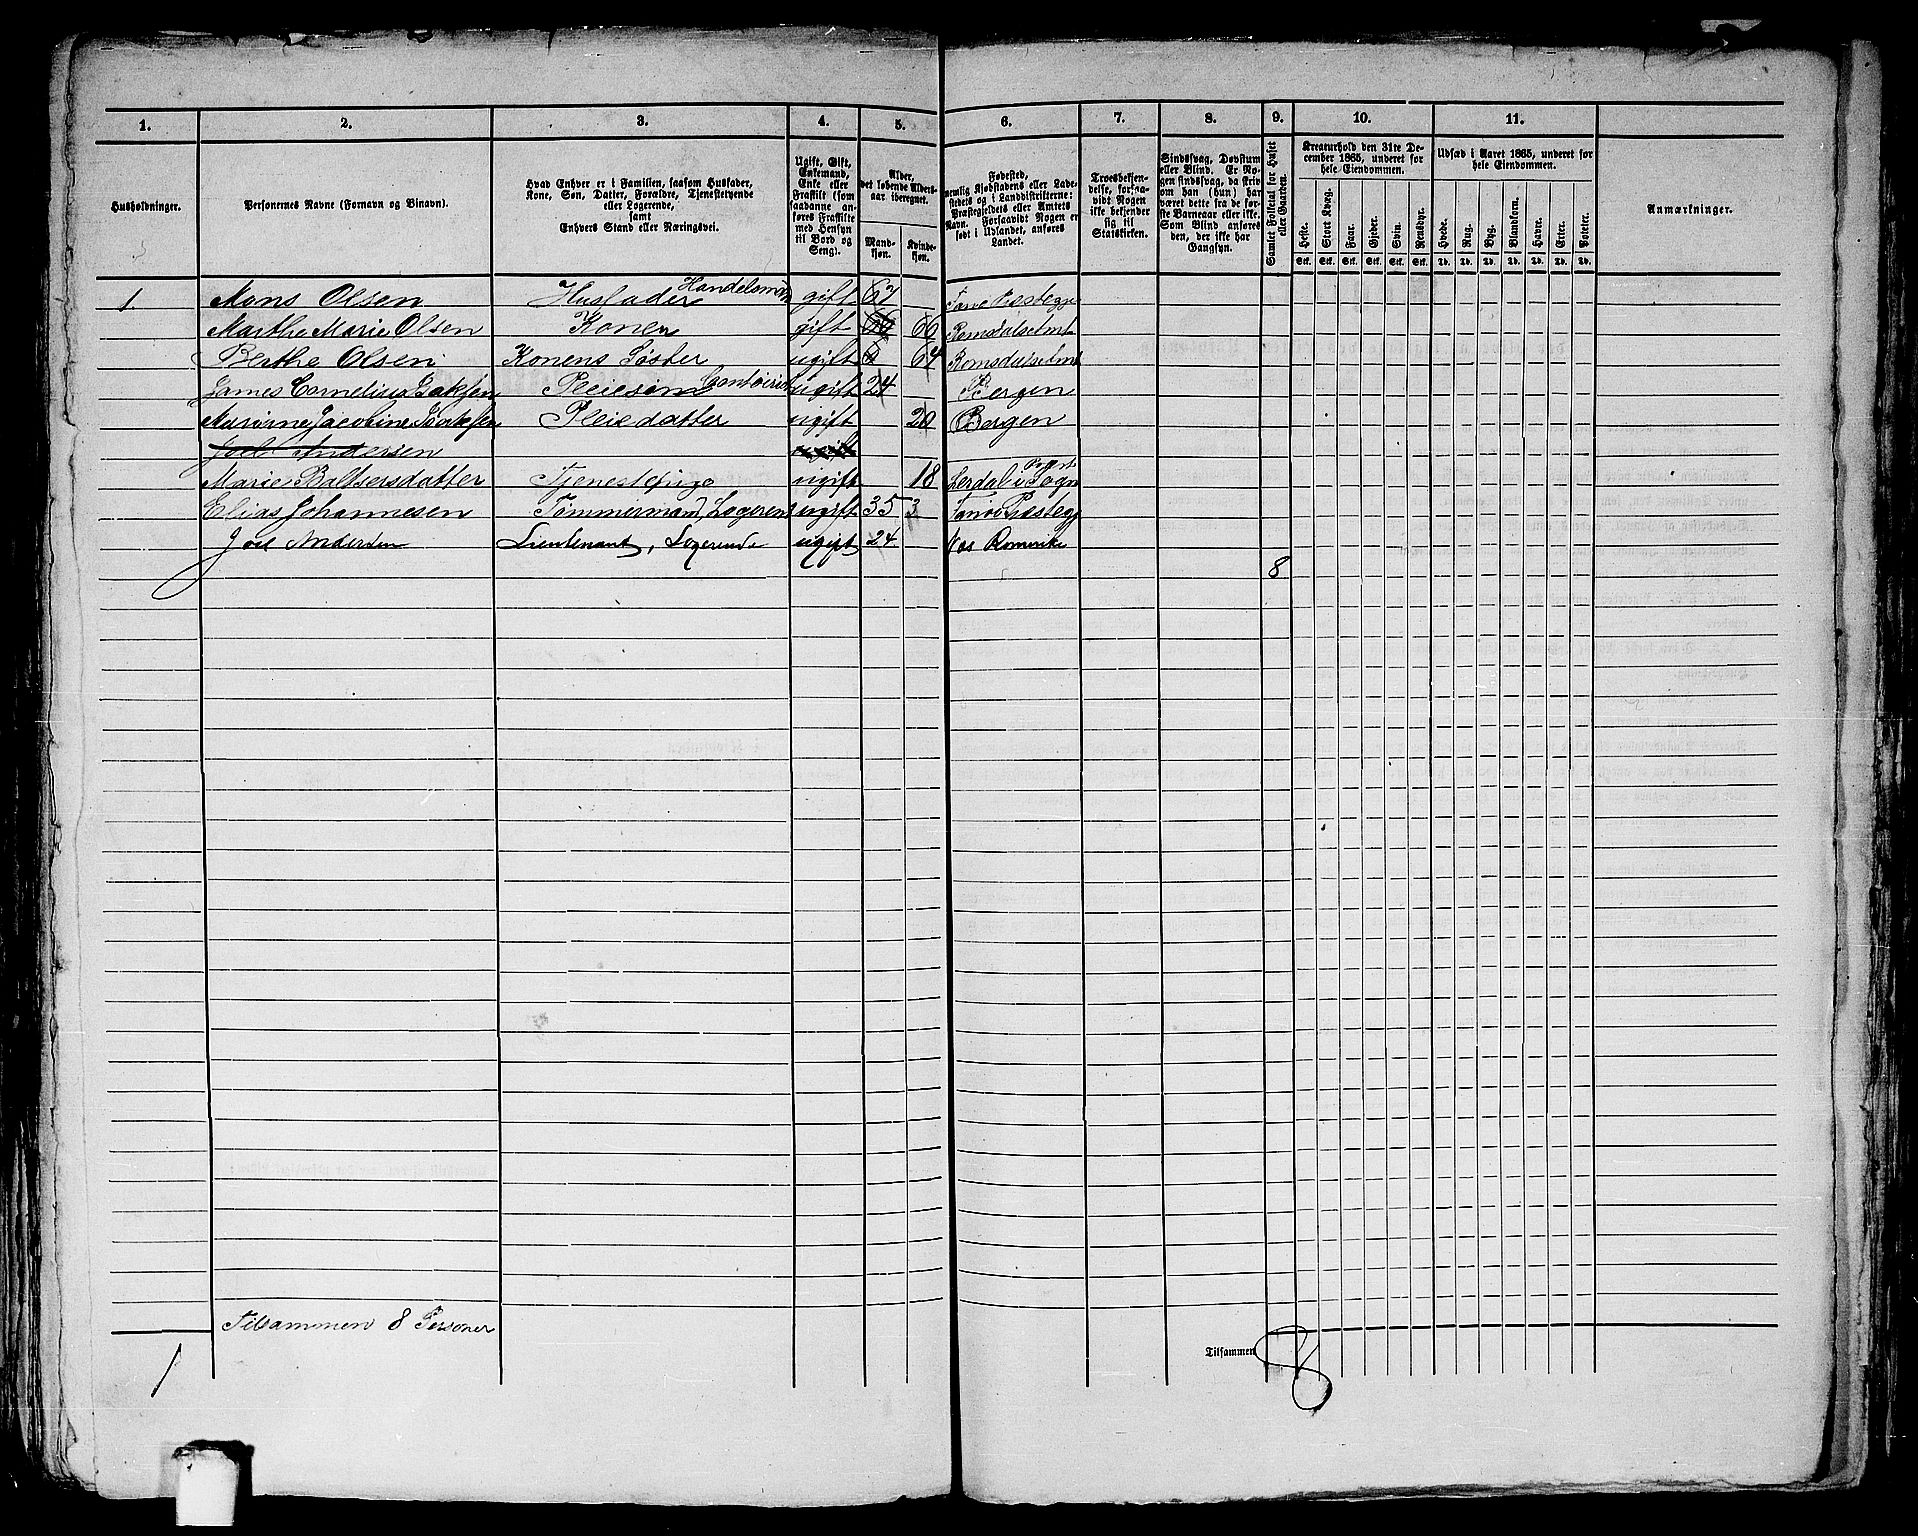 1. 2. 3. 4. 5. 6. 7. 8. 9. 10. 11.
Husholdninger.
Personernes Navne (Fornavn og Binavn).
Hvad Enhver er i Familien, saasom Husfader, Kone, Søn, Datter, Forældre, Tjenestetyende eller Logerende, samt Enhvers Stand eller Næringsvei.
Ugift, Gift, Enkemand, Enke eller Fraskilt (som saadanne anføres Fraskilte med Hensyn til Bord og Seng).
Alder, det løbende Alders-aar iberegnet.
Mandkjøn. Kvindekjøn.
Fødested, nemlig Kjøbstadens eller Ladestedets og i Landdistrikterne: Præstegjeldets eller Amtets Navn. Forsaavidt Nogen er født i Udlandet, anføres Landet.
Troesbekjendelse, forsaavidt Nogen ikke bekjender sig til Statskirken.
Sindssvag, Døvstum eller Blind. Er Nogen sindssvag, da skrives om han (hun) har været dette fra de første Barneaar eller ikke. Som Blind anføres den, der ikke har Gangsyn.
Samlet Folketal for Huset eller Gaarden.
Kreaturhold den 31te December 1865, underet for hele Eiendommen.
Heste. Stort Kvæg. Faar. Gjeder. Svin. Rensdyr.
Udsæd i Aaret 1865, underet for hele Eiendommen.
Hvede. Rug. Byg. Blandkorn. Havre. Erter. Poteter.
Anmærkninger.
1. Mons Olsen Husfader Handelsmand gift 67 Fane Præstegj
Marthe Marie Olsen Konen gift 66 Romsdalsetmt
Berthe Olsen Konens Søster ugift 64 Romsdalsetmt
James Cornelius Isaksen Pleiesøn Contoirist ugift 24 Bergen
Jacobine Pleiedatter ugift 20 Bergen
Joel Andersen ugift
Marie Baltsersdatter Tjenestepige ugift 18 Lerdal i Sogn
Elias Johannesen Tømmermand, Logerend ugift 35 3 Fane Præstegj
Joel Andersen Lieutenant, Logerende ugift 24 Næs Romerike
8
Tilsammen 8 Personer
Tilsammen 8
1